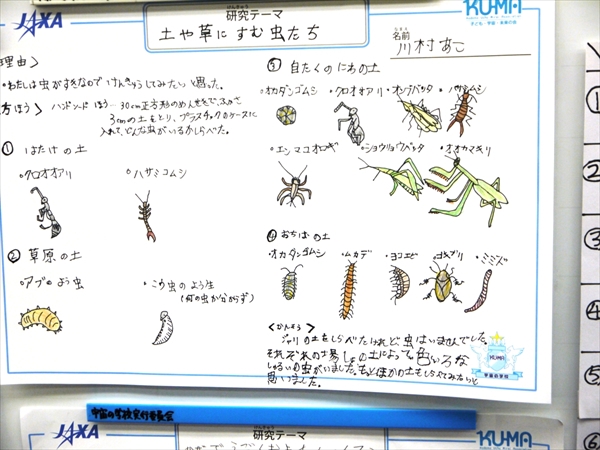 JAXA
けんきゅう
研究テーマ
土や草にすむ虫たち
KUMA
子ども・宇宙・未来の会
名前
川村あこ
理由〉
・わたしは虫がすきなので けんきゅうしてみたいと思った。
方ほう〉 ハンドソード ほう…30cm正方形のめんせきで、ふかさ
3cmの土をとり、プラスチックのケースに
入れて、どんな虫がいるかしらべた。
① はたけの土
・クロオオアリ ・ハサミコムシ
② 草原の土
・アブのよう虫 ・こう虫のよう生
(何の虫か分からず)
③ 自たくのにわの土
・オカダンゴムシ ・クロオオアリ ・オンブバッタ ・ハサミムシ
・エンマコオロギ ・ショウリョウバッタ ・オオカマキリ
④ おちばの土
・オカダンゴムシ ・ムカデ ・ヨコエビ ・ゴキブリ ・ミミズ
〈かんそう〉
ジャリの土をしらべたけれど虫はいませんでした。
それぞれの場しょの土によって色いろな
しゅるいの虫がいました。もっとほかの土もしらべてみたいと
思いました。
KUMA
宇宙の学校
宇宙の学校実行委員会
JAXA
けんきゅう
研究テーマ
KUMA
子ども・宇宙・未来の会
①
②
③
④
⑤
⑥